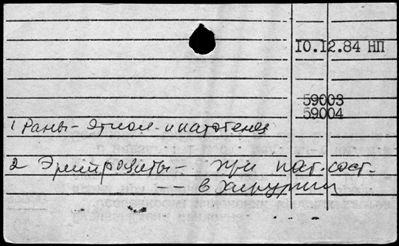 10.12.84 НП
59003
59004
1 Раны - Этиол. и патогенез
2 Эритроциты - при пат. сост.
-- в хирургии